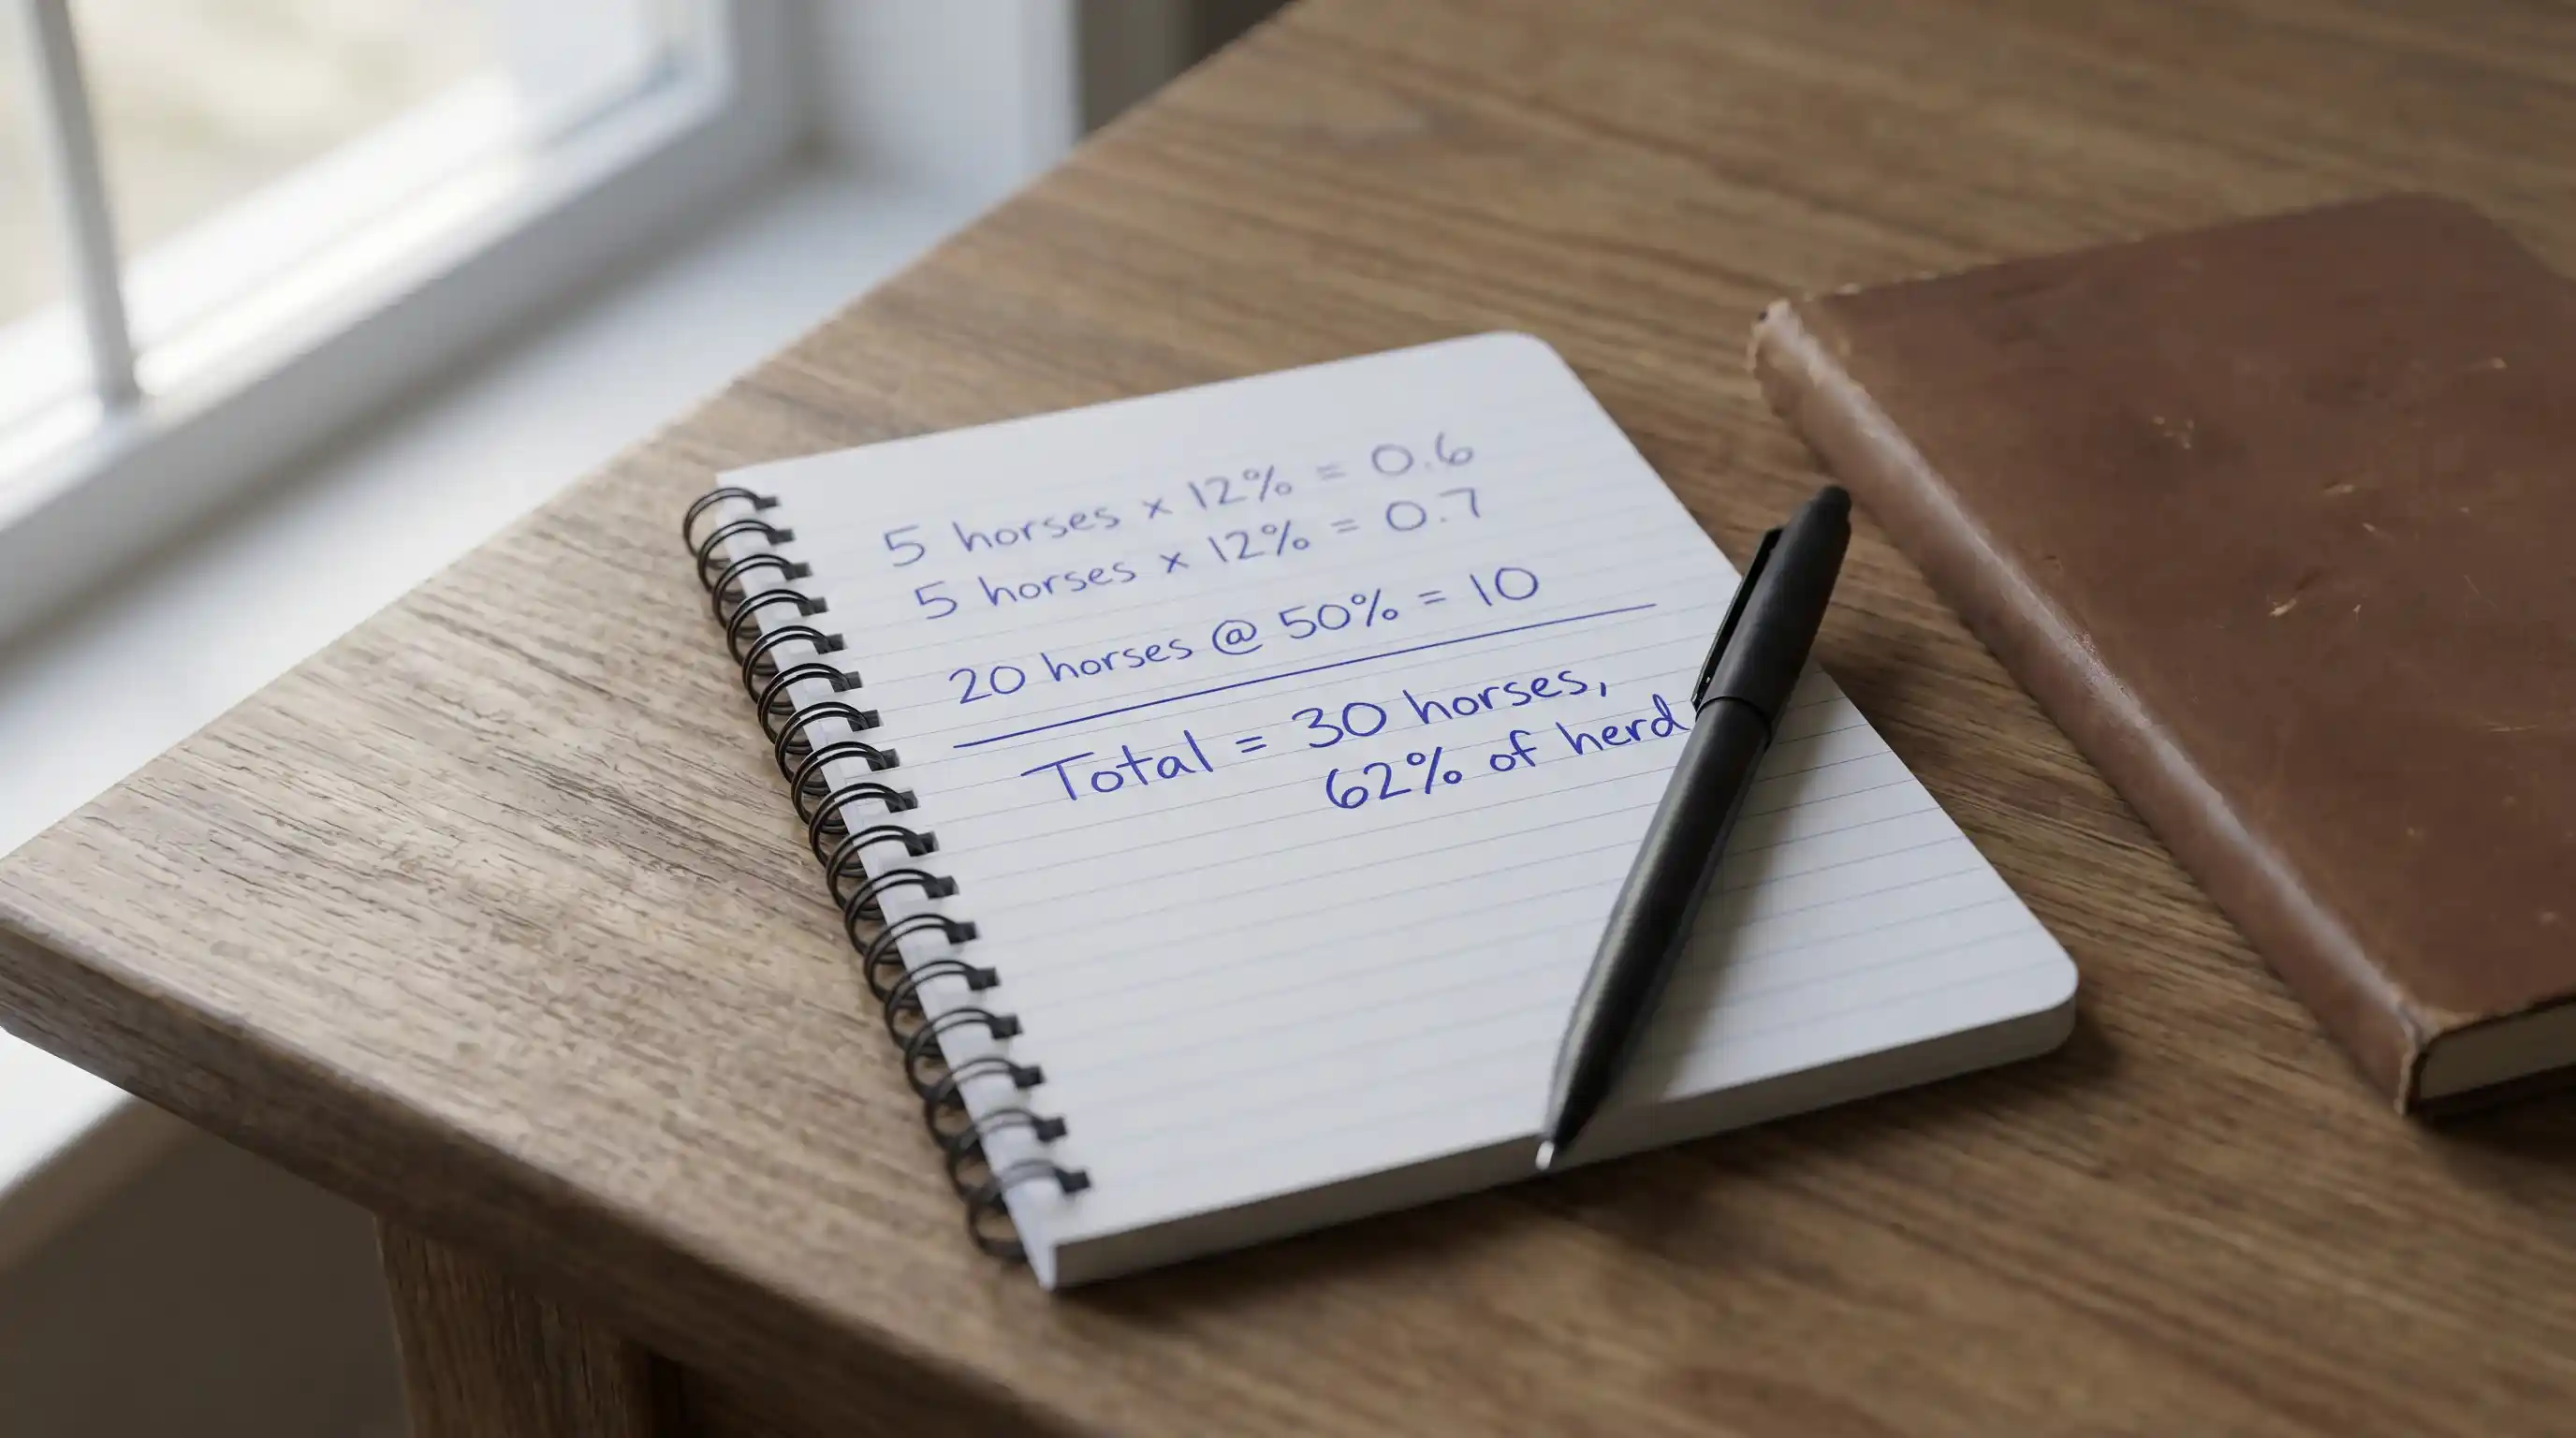 5 horses x 12% = 0.6
5 horses x 12% = 0.7
20 horses @ 50% = 10
Total = 30 horses,
62% of herd